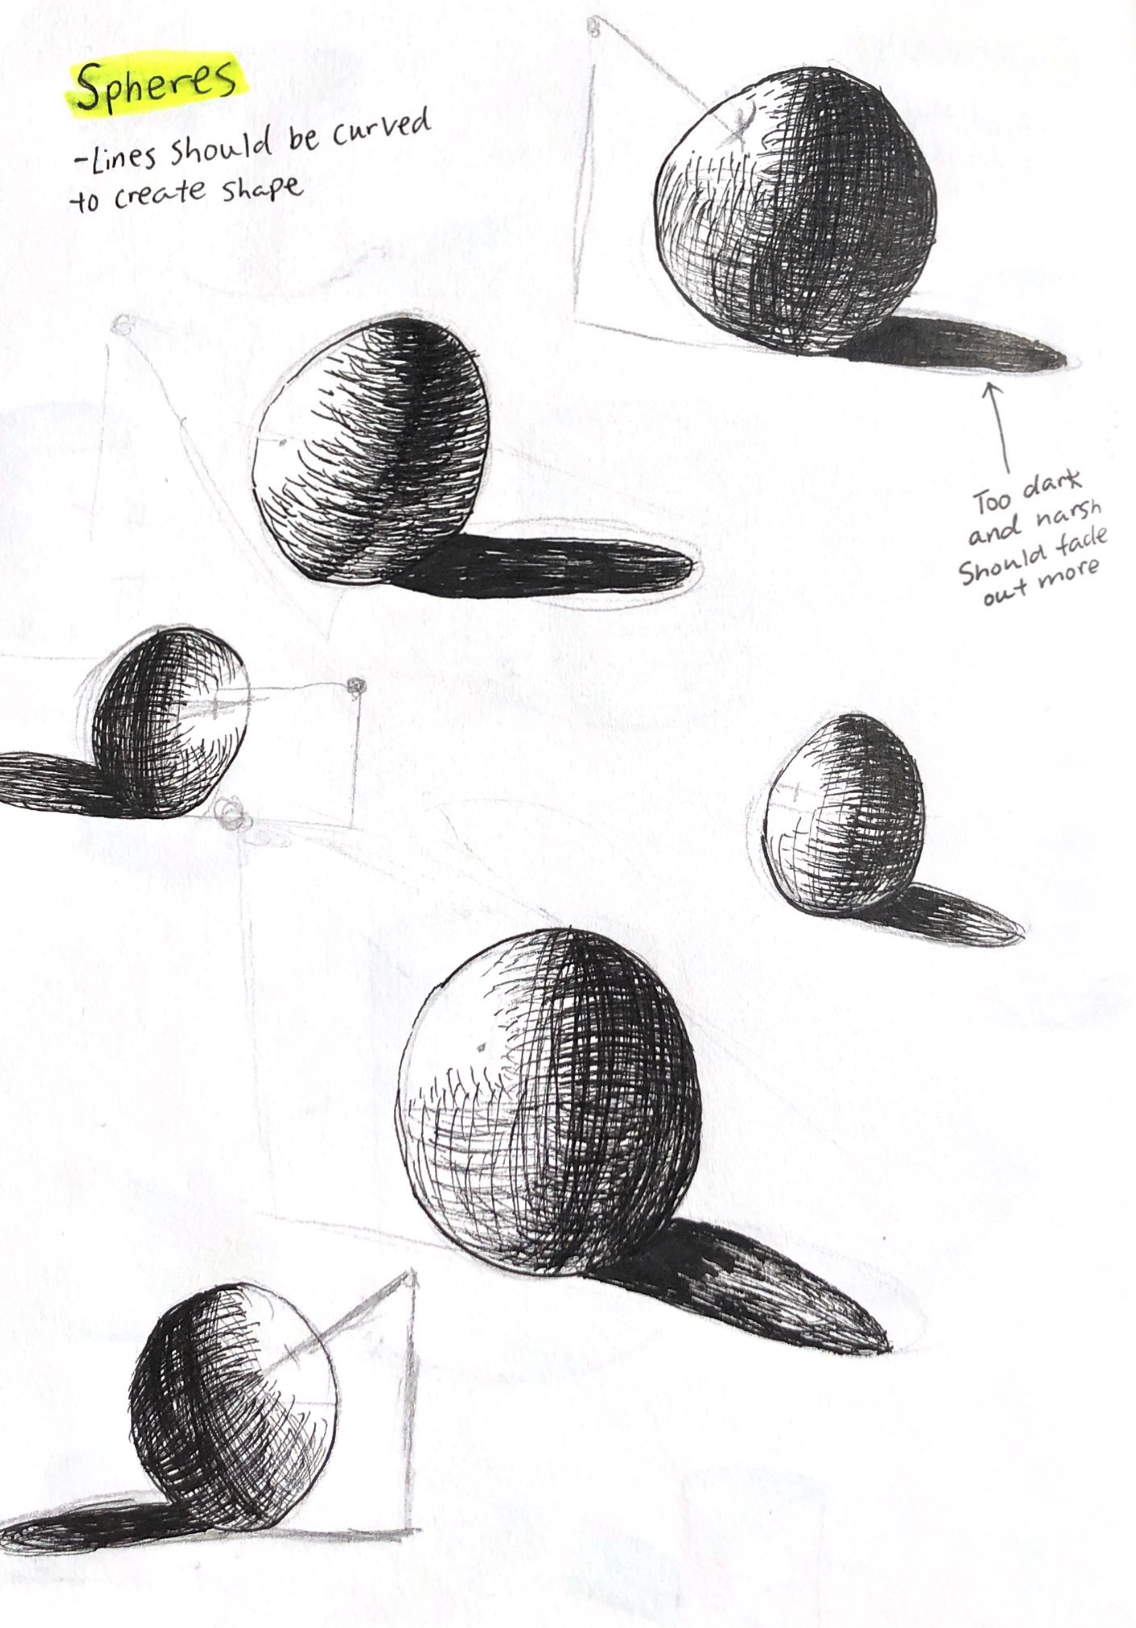 Spheres
-Lines should be curved
to create shape
Too dark
and harsh
Should fade
out more